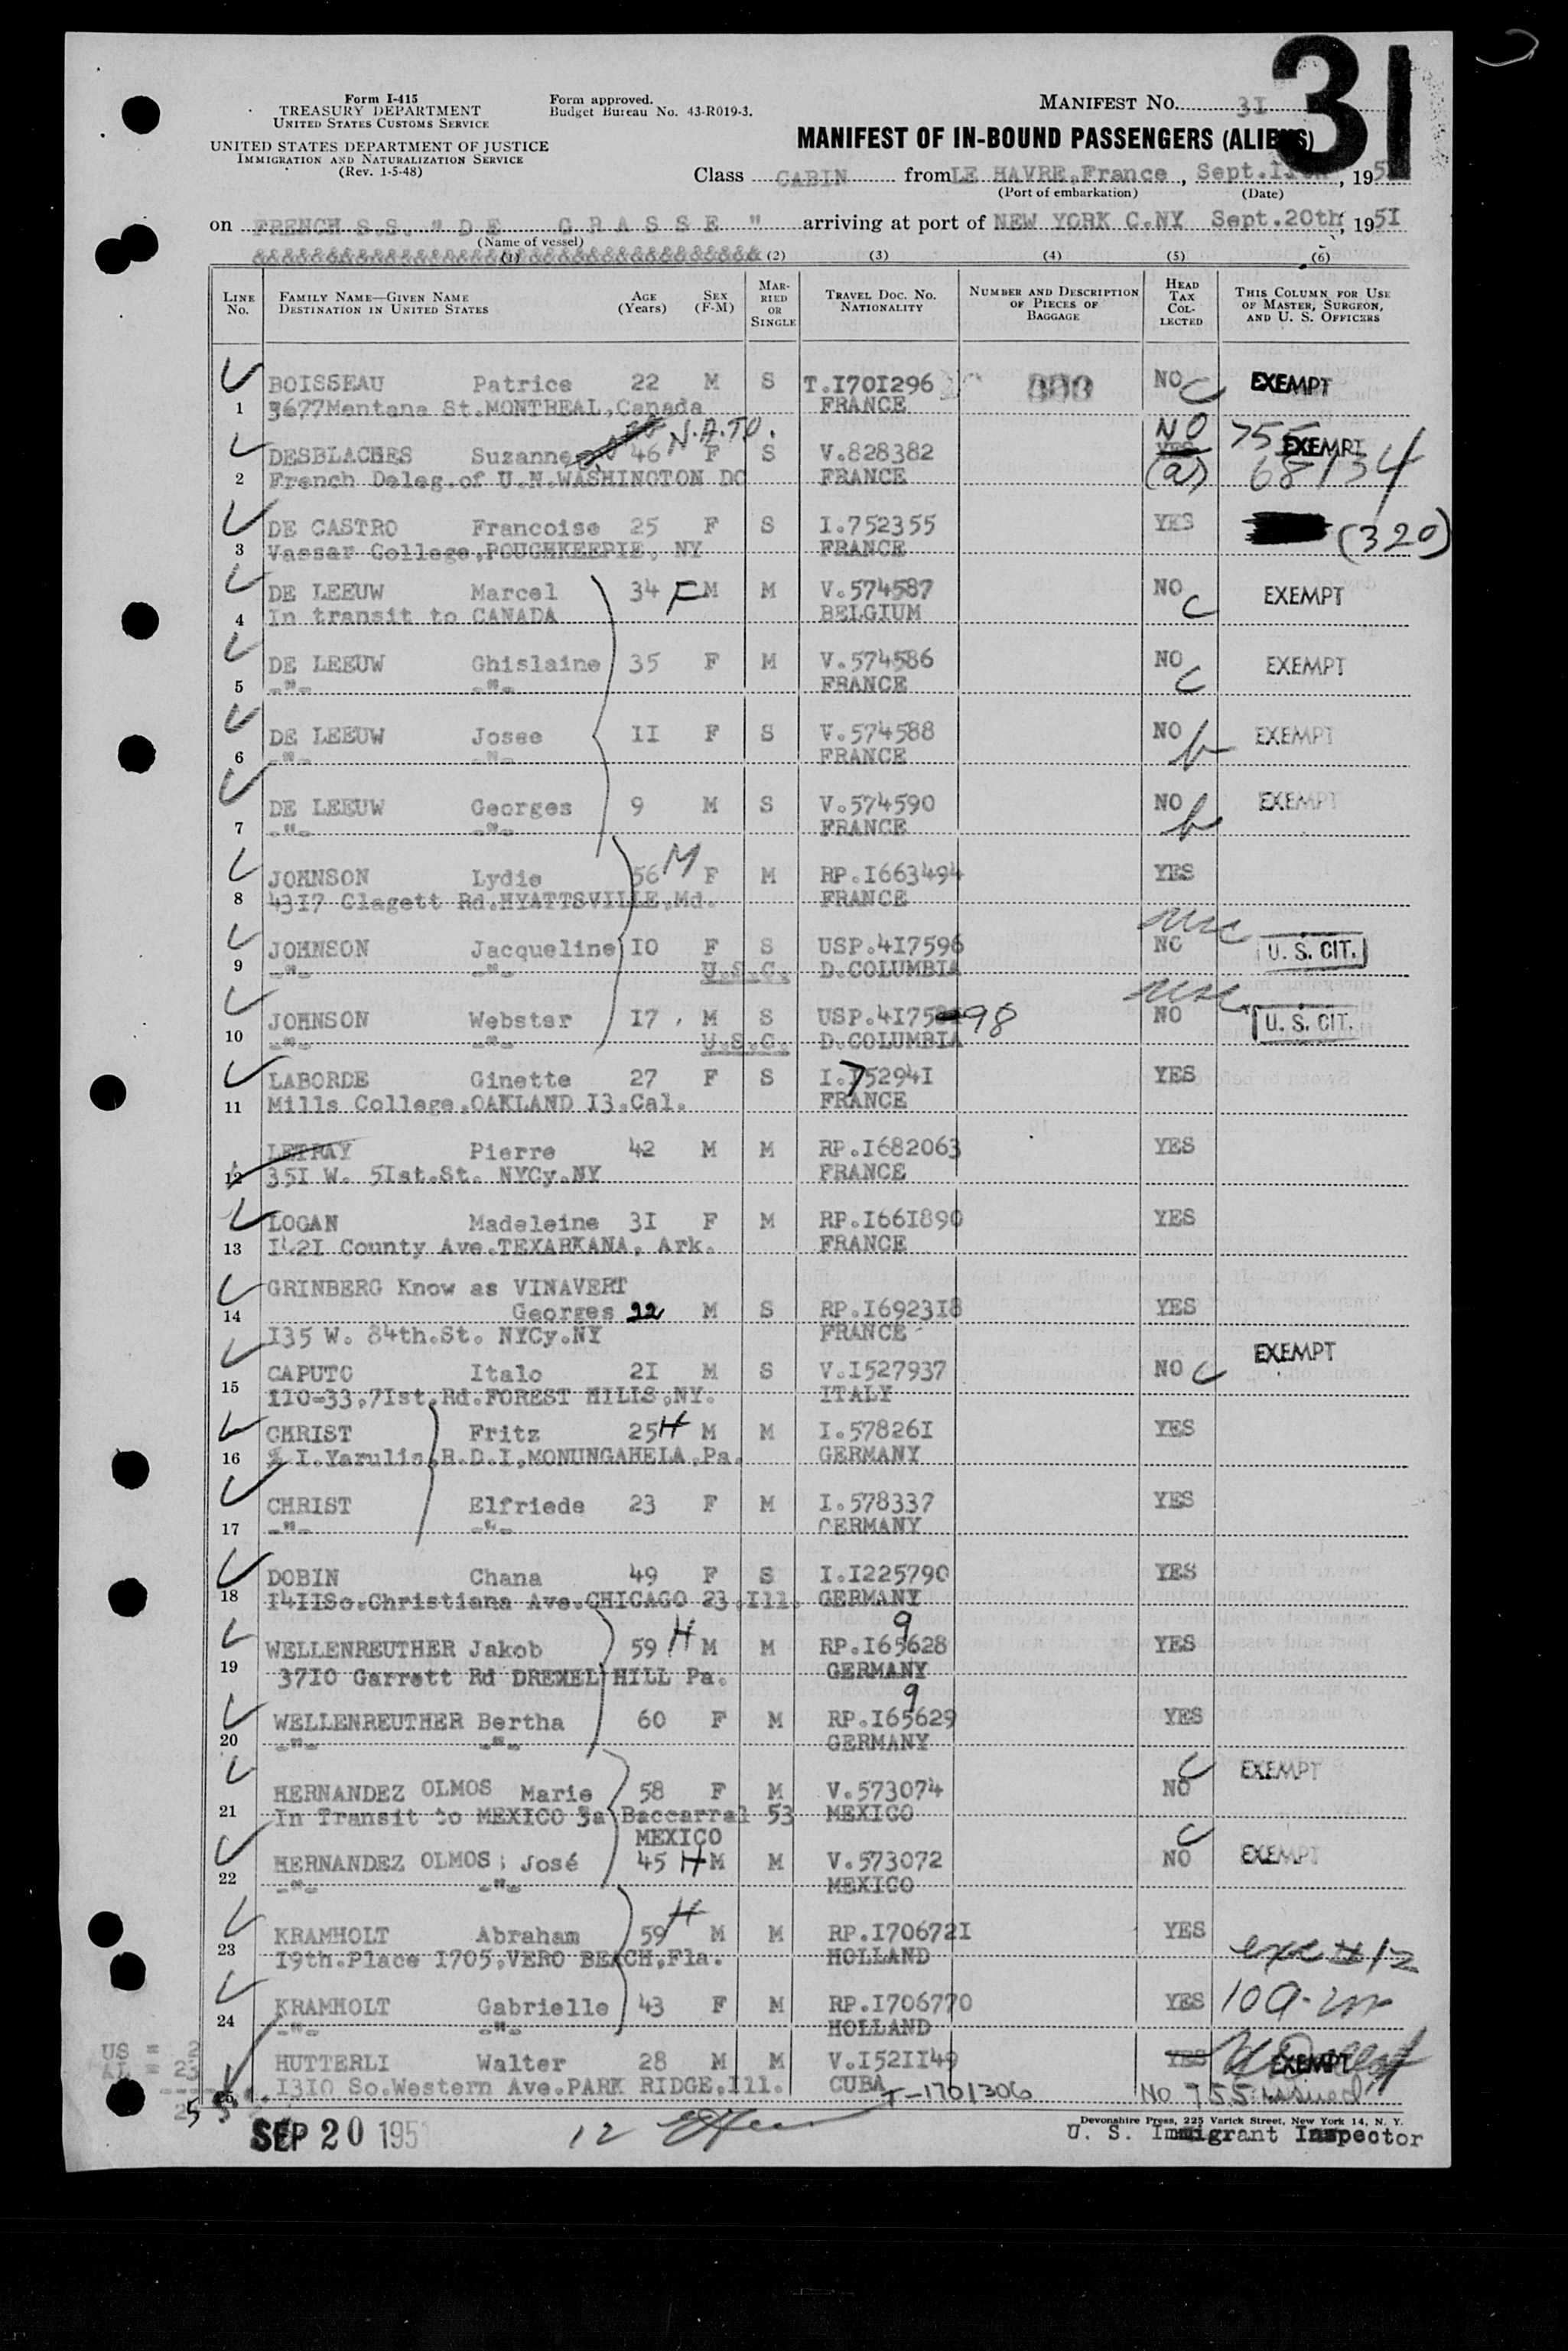 31
Form I-415
TREASURY DEPARTMENT
UNITED STATES CUSTOMS SERVICE
UNITED STATES DEPARTMENT OF JUSTICE
IMMIGRATION AND NATURALIZATION SERVICE
(Rev. 1-5-48)
Form approved.
Budget Bureau No. 43-R019-3.
MANIFEST NO. 3I
MANIFEST OF IN-BOUND PASSENGERS (ALIENS)
Class CABIN from LE HAVRE,France, Sept. , 195
(Port of embarkation) (Date)
on FRENCH S.S. "D E G R A S S E " arriving at port of NEW YORK C.NY Sept.20th, 195I
(Name of vessel)
(1) (2) (3) (4) (5) (6)
LINE No. FAMILY NAME—GIVEN NAME DESTINATION IN UNITED STATES AGE (YEARS) SEX (F-M) MARRIED OR SINGLE TRAVEL DOC. NO. NATIONALITY NUMBER AND DESCRIPTION OF PIECES OF BAGGAGE HEAD TAX COLLECTED THIS COLUMN FOR USE OF MASTER, SURGEON, AND U. S. OFFICERS
1 BOISSEAU Patrice 22 M S T.I70I296 NO C EXEMPT
3677Mentana St.MONTREAL,Canada FRANCE
N.A.T.O. NO 755
2 DESBLACHES Suzanne 46 F S V.828382 YES EXEMPT
French Deleg.of U.N.WASHINGTON DC FRANCE (a) 68134
3 DE CASTRO Francoise 25 F S I.752355 YES (320)
Vassar College,POUGHKEEPIE, NY FRANCE
4 DE LEEUW Marcel 34 F M M V.574587 NO C EXEMPT
In transit to CANADA BELGIUM
5 DE LEEUW Ghislaine 35 F M V.574586 NO C EXEMPT
-"- -"- FRANCE
6 DE LEEUW Josee II F S V.574588 NO b EXEMPT
-"- -"- FRANCE
7 DE LEEUW Georges 9 M S V.574590 NO b EXEMPT
-"- -"- FRANCE
8 JOHNSON Lydie 56 M F M RP.I663494 YES
43I7 Clagett Rd.HYATTSVILLE,Md. FRANCE
usc
9 JOHNSON Jacqueline IO F S USP.4I7596 NO U. S. CIT.
-"- -"- U.S.C. D.COLUMBIA
usc
10 JOHNSON Webster I7 M S USP.4I75 98 NO U. S. CIT.
-"- -"- U.S.C. D.COLUMBIA
11 LABORDE Ginette 27 F S I.75294I YES
Mills College.OAKLAND I3.Cal. FRANCE
12 LETRAY Pierre 42 M M RP.I682063 YES
35I W. 5Ist.St. NYCy.NY FRANCE
13 LOGAN Madeleine 3I F M RP.I66I890 YES
I42I County Ave.TEXARKANA, Ark. FRANCE
14 GRINBERG Know as VINAVERT
Georges 22 M S RP.I6923I8 YES
I35 W. 84th.St. NYCy.NY FRANCE
15 CAPUTO Italo 2I M S V.I527937 NO C EXEMPT
110-33.7Ist.Rd.FOREST HILLS,NY. ITALY
16 CHRIST Fritz 25 H M M I.57826I YES
% I.Yarulis,R.D.I,MONUNGAHELA,Pa. GERMANY
17 CHRIST Elfriede 23 F M I.578337 YES
-"- -"- GERMANY
18 DOBIN Chana 49 F S I.I225790 YES
I4IISo.Christiana Ave.CHICAGO 23.Ill. GERMANY
9
19 WELLENREUTHER Jakob 59 H M M RP.I65628 YES
37IO Garrett Rd DREXEL HILL Pa. GERMANY
9
20 WELLENREUTHER Bertha 60 F M RP.I65629 YES
-"- -"- GERMANY
21 HERNANDEZ OLMOS Marie 58 F M V.573074 C NO EXEMPT
In Transit to MEXICO 3a Baccarral 53 MEXICO
MEXICO
22 HERNANDEZ OLMOS José 45 H M M V.573072 C NO EXEMPT
-"- -"- MEXICO
23 KRAMHOLT Abraham 59 H M M RP.I70672I YES
I9th.Place I705.VERO BEACH,Fla. HOLLAND
24 KRAMHOLT Gabrielle 43 F M RP.I706770 YES
-"- -"- HOLLAND
25 HUTTERLI Walter 28 M M V.I52II49 YES EXEMPT
I3IO So.Western Ave.PARK RIDGE.Ill. CUBA T-1701306 NO 755 issued
US = 2
AL = 23
SEP 20 195
12
Devonshire Press, 225 Varick Street, New York 14, N. Y.
U. S. Immigrant Inspector